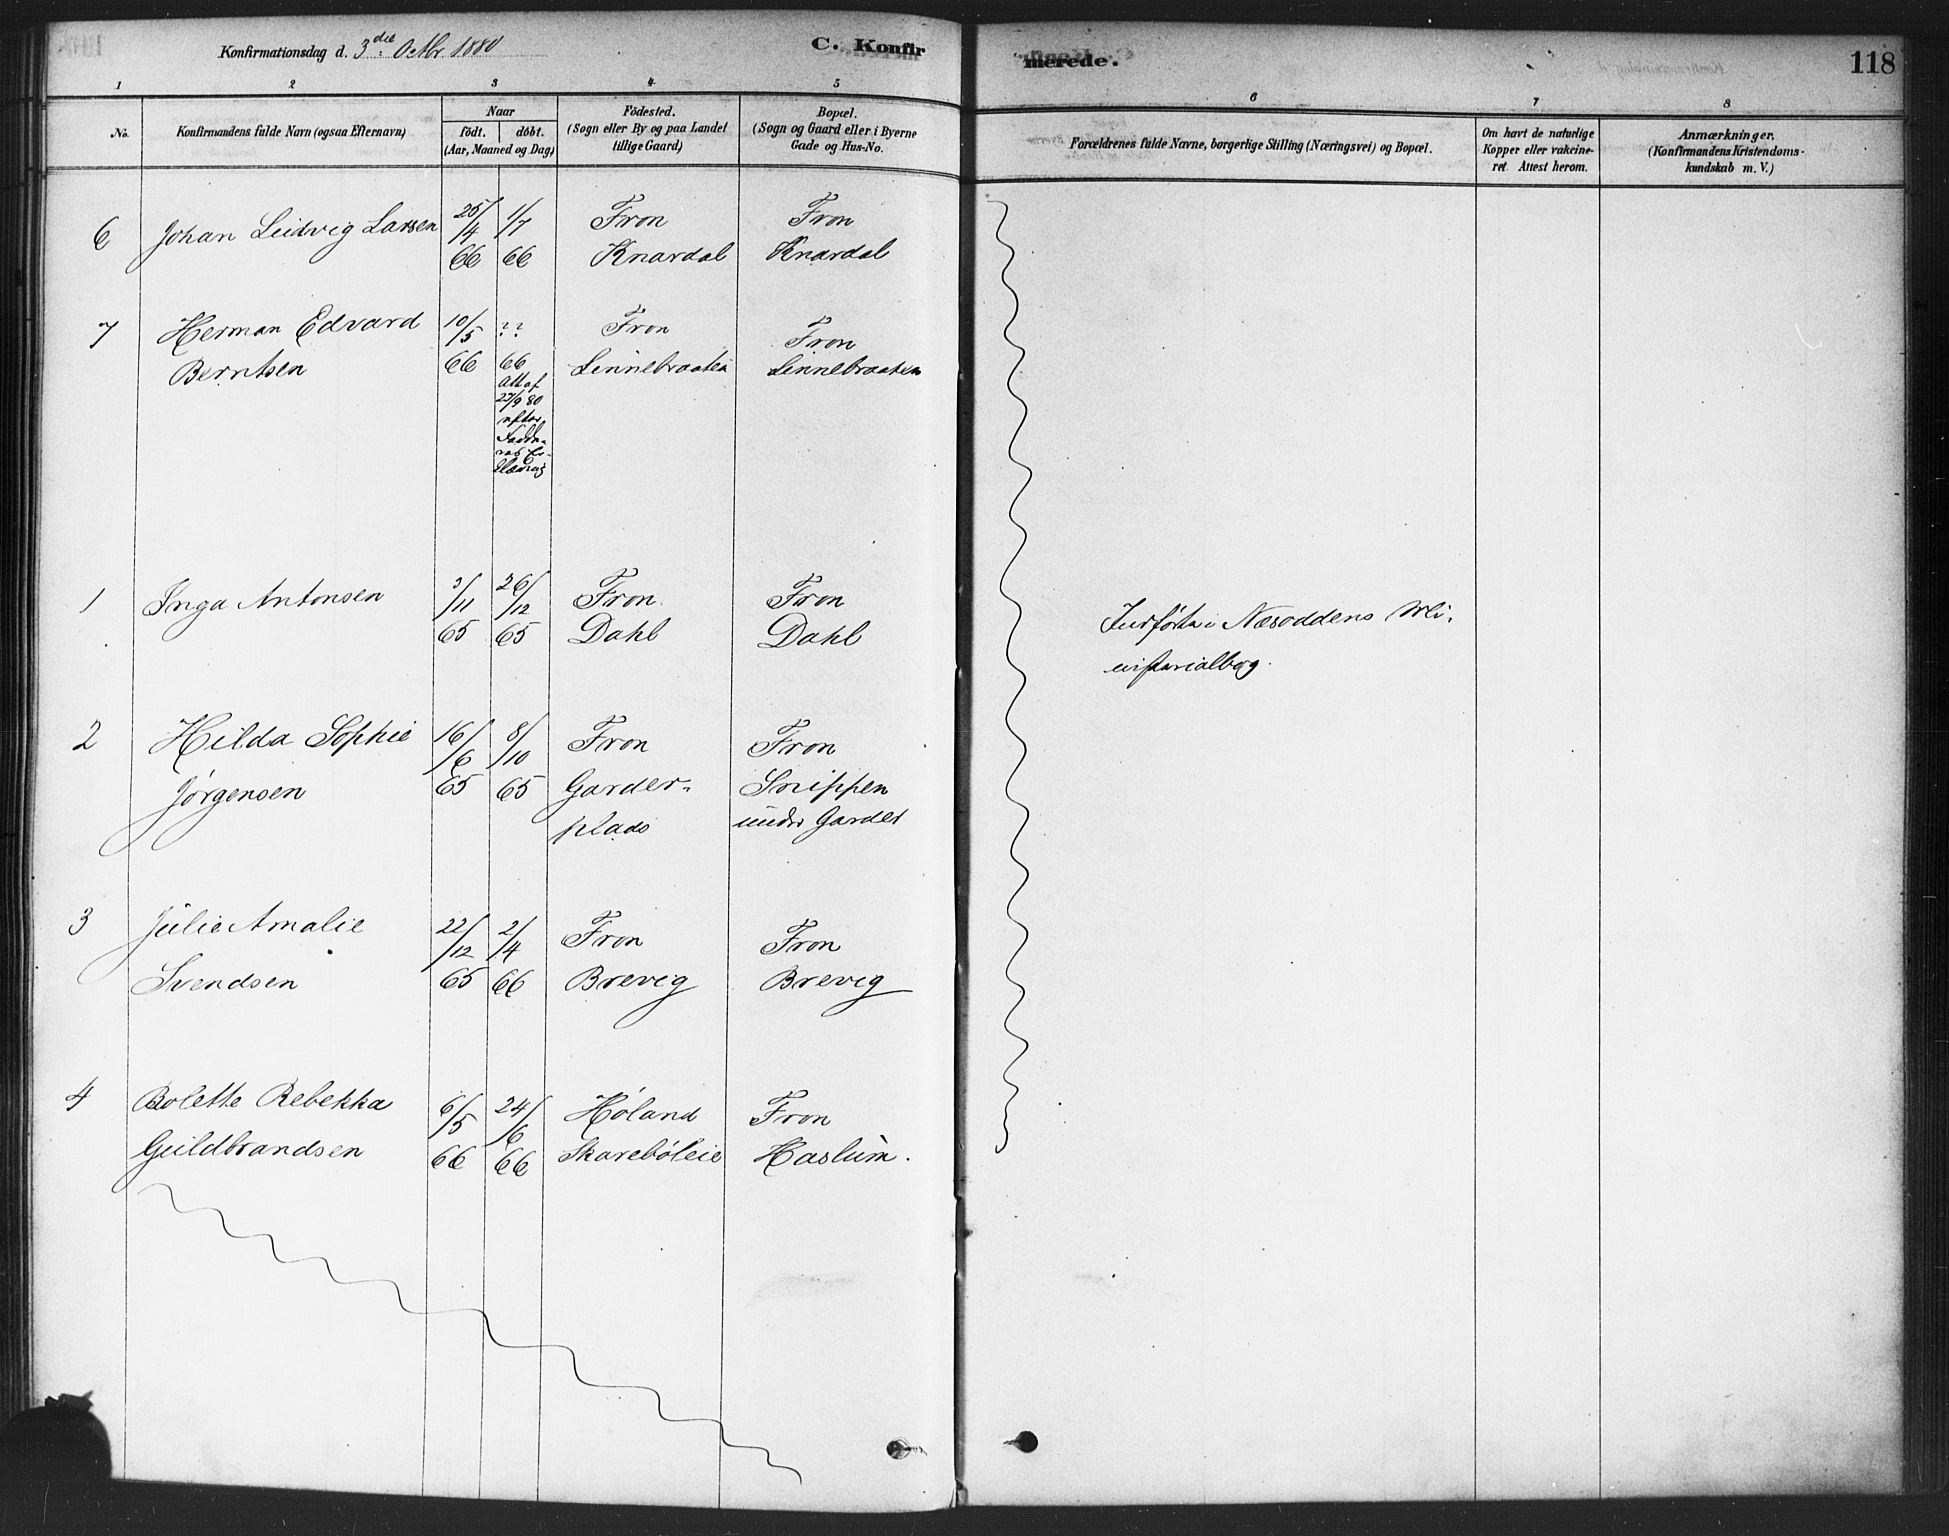 Konfirmationsdag d. 3die Octbr. 1880
C. Konfirmerede.
118
1 2 3 4 5 6 7 8
No.
Konfirmandens fulde Navn (ogsaa Efternavn)
Naar
födt. döbt.
(Aar, Maaned og Dag)
Födested.
(Sogn eller By og paa Landet
tillige Gaard)
Bopæl.
(Sogn og Gaard eller i Byerne
Gade og Hus-No.
Forældrenes fulde Navne, borgerlige Stilling (Næringsvei) og Bopæl.
Om havt de naturlige
Kopper eller vakcine-
ret. Attest herom.
Anmærkninger.
(Konfirmandens Kristendoms-
kundskab m. V.)
6 Johan Ludvig Larsen 25/4 1/7 Fron Fron
66 66 Knardal Knardal
7 Herman Edvard 10/5 ?? Fron Fron
Berntsen 66 66 Linnebraaten Linnebraaten
Att af
27/9 80
efter
1 Inga Antonsen 3/11 26/12 Fron Fron
65 65 Dahl Dahl
Indførte i Næsoddens Mi-
nisterialbog.
2 Hilda Sophie 16/6 8/10 Fron Fron
Jørgensen 65 65 Garder- Snippen
plads under Garder
3 Julie Amalie 22/12 2/4 Fron Fron
Svendsen 65 66 Brevig Brevig
4 Bolette Rebekka 6/5 24/6 Høland Fron
Guldbrandsen 66 66 Skarebøleie Haslum.